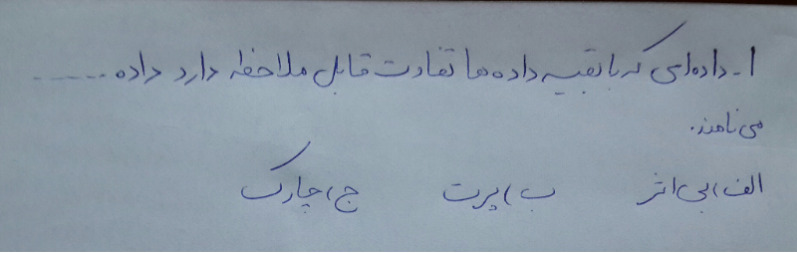 ۱- داده‌ای که با بقیه داده ها تفاوت قابل ملاحظه دارد داده ......
می نامند.
الف) بی اثر ب) پرت ج) چارک